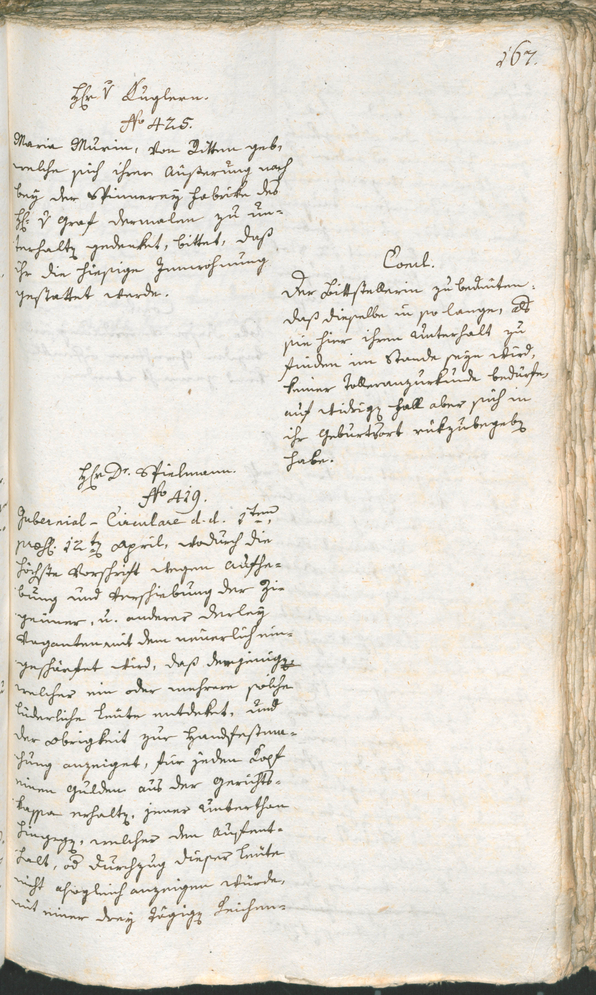 167.
Hr. v Kuglern.
No 425.
Maria Murin, von Ritten geb.
welche sich ihrer Äußerung nach
bey der Spinnerey Fabrike des
H: v Graf dermalen zu un-
terhaltn gedenket, bittet, daß
ihr die hiesige Innwohnung
gestattet werde.
Concl.
Der Bittstellerin zu bedeuten:
daß dieselbe in so lange, als
sie hier ihren Unterhalt zu
finden im Stande seyn wird,
keiner Tolleranzurkunde bedürfe,
auf widrign Fall aber sich in
ihr Geburtsort rükzubegebn
habe.
Hr. Dr. Spielmann.
No 419.
Gubernial-Circulare d. d. 1ten
praes. 12tn April, wodurch die
höchste Vorschrift wegen Aufhe-
bung und Verschiebung der Zi-
geuner, u. anderer derley
Vaganten mit dem neuerlich ein-
geschärfet wird, daß derjenige
welcher ein oder mehrere solche
liederliche Leute entdeket, und
der Obrigkeit zur Handfestma-
chung anzeiget, für jeden Kopf
einen Gulden aus der Gerichts-
kassa erhaltn, jener Unterthan
hingegn, welcher den Aufent-
halt, od Durchzug dieser Leute
nicht alsogleich anzeigen würde,
mit einer drey tägign Leibes-